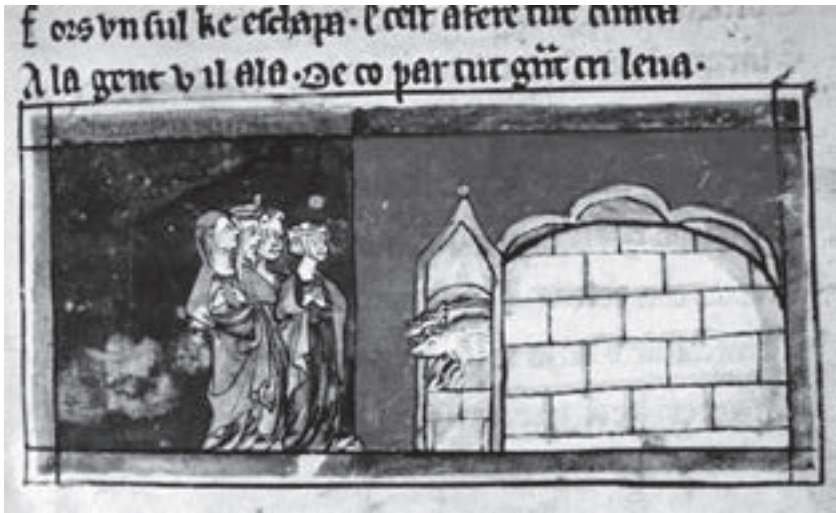 F ors vn sul ke eschapa · E cest afere tut cunta
A la gent v il ala · De co par tut grant cri leua ·